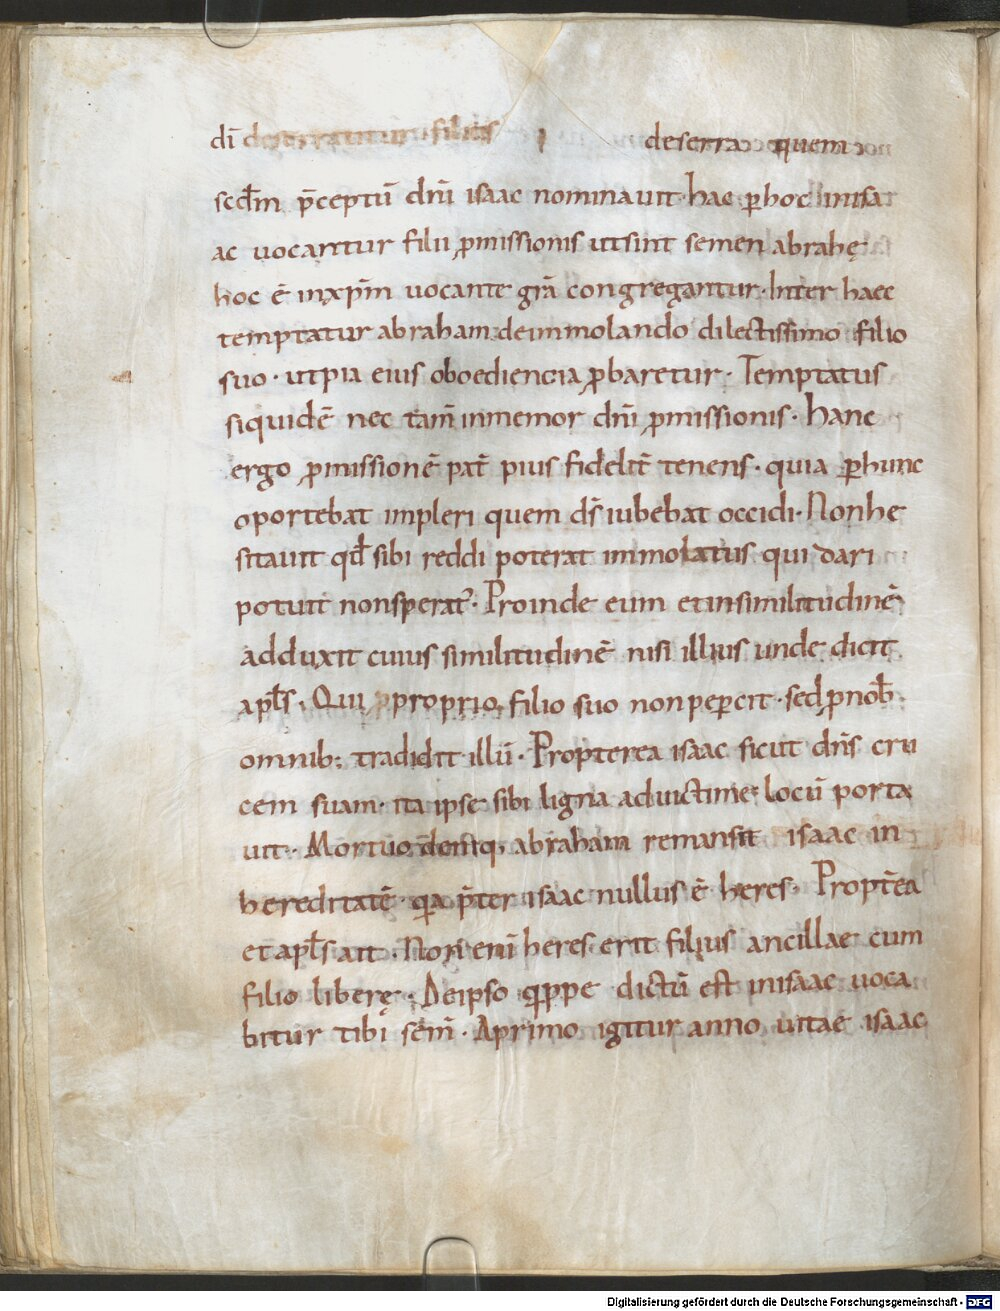 dī de serra quem
scdm̄ p̄ceptū dn̄i isaac nominauit· hac ꝑ hoc inisa
ac uocantur filii ꝓmissionis utsint semen abrahę
hoc ē inxpm̄ uocante gr̄a congregantur· Inter haec
temptatur abraham deimmolando dilectissimo filio
suo· utpia eius oboediencia ꝓbaretur· Temptatus
siquidē nec tam̄ inmemor dn̄i ꝓmissionis· hanc
ergo ꝓmissionē pat̄ pius fidelit̄ tenens· quia ꝑhunc
oportebat impleri quem ds̄ iubebat occidi· Nonhe
sitauit qđ sibi reddi poterat immolatus qui dari
potuit nonsperat᷒· Proinde eum etinsimilitudinē
adduxit cuius similitudinē nisi illius unde dicit
apl̄s· Qui proprio filio suo nonpeꝑcit· sedꝓnob̄
omnib; tradidit illū· Propterea isaac sicut dn̄s cru
cem suam· ita ipse sibi ligna aduictime locū porta
uit· Mortuo deniq; abraham remansit isaac in
hereditatē· qa p̄ter isaac nullus ē heres· Propt̄ea
et apl̄s ait· Non enī heres erit filius ancillae cum
filio liberę· Deipso qꝓpe dictū est inisaac uoca
bitur tibi sem̄· Aprimo igitur anno uitae isaac
Digitalisierung gefördert durch die Deutsche Forschungsgemeinschaft - DFG